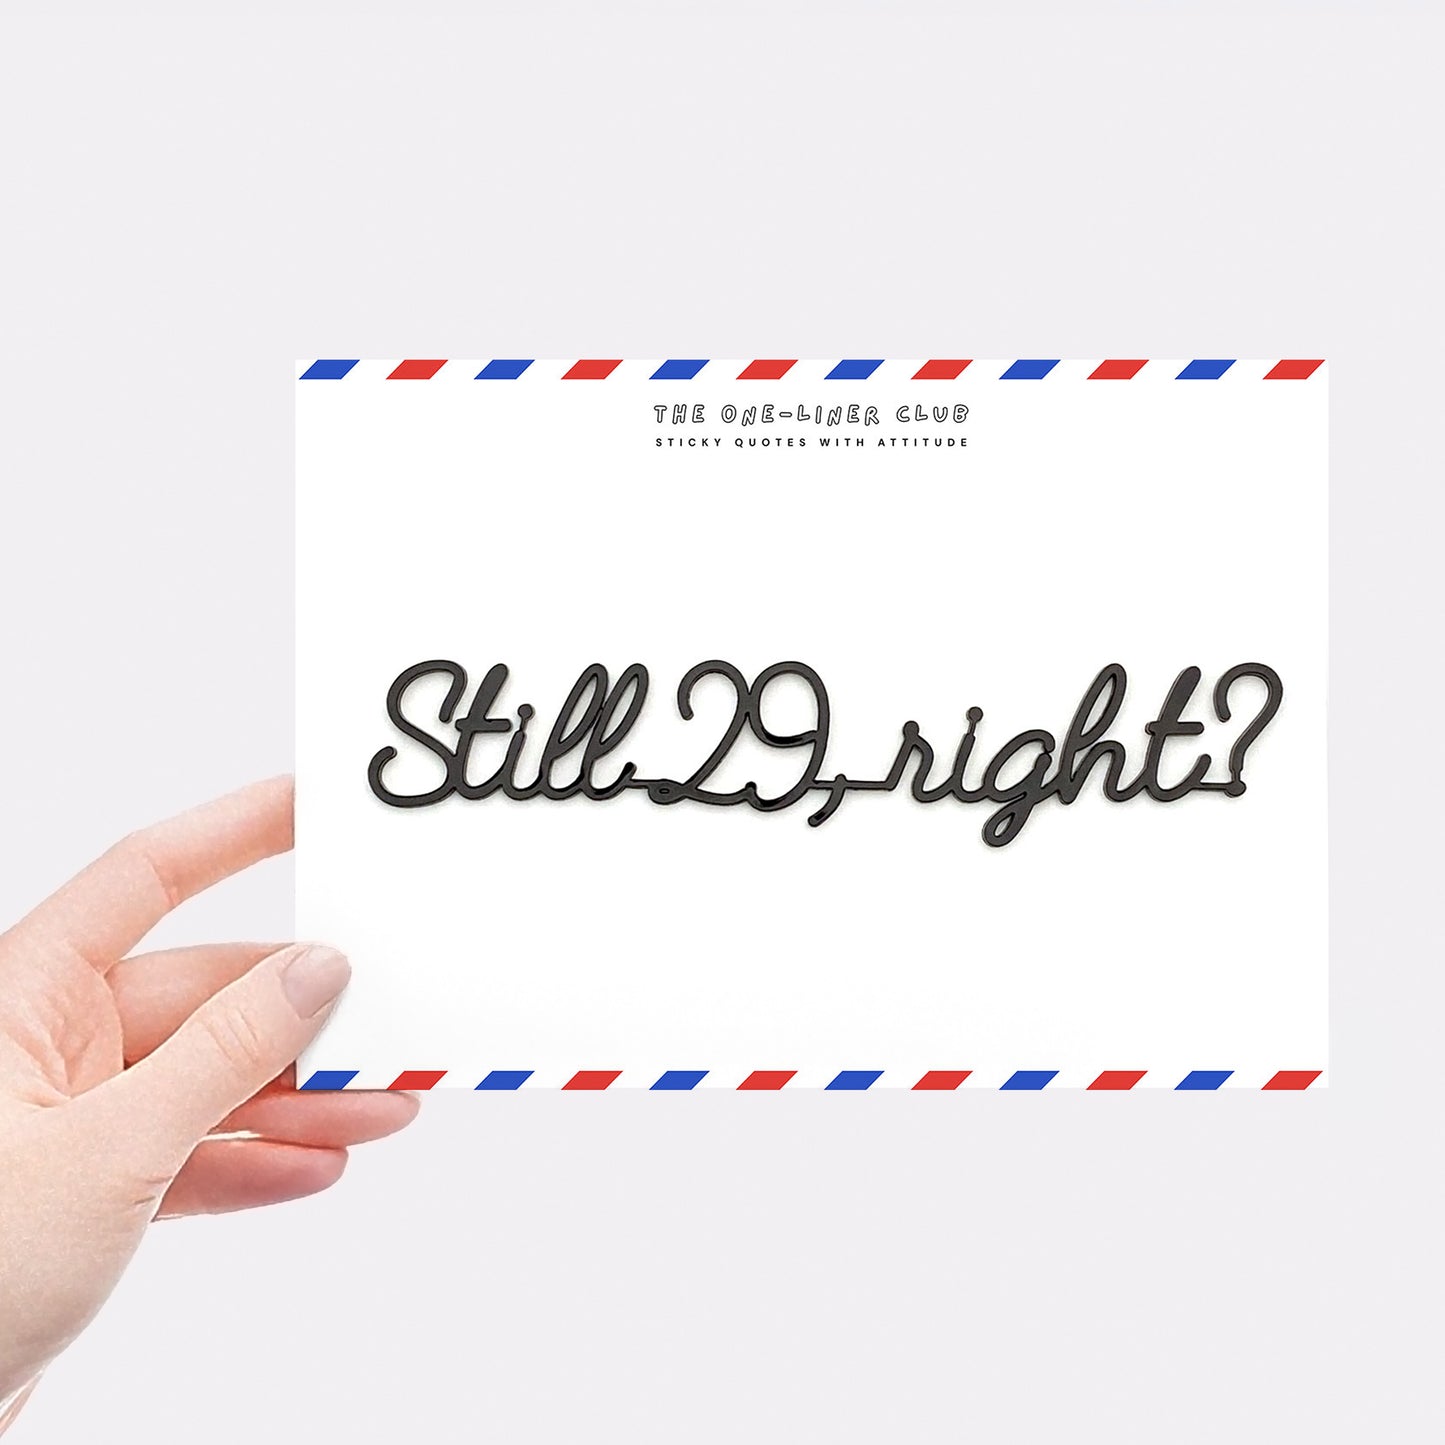 THE ONE-LINER CLUB
STICKY QUOTES WITH ATTITUDE
Still 29, right?